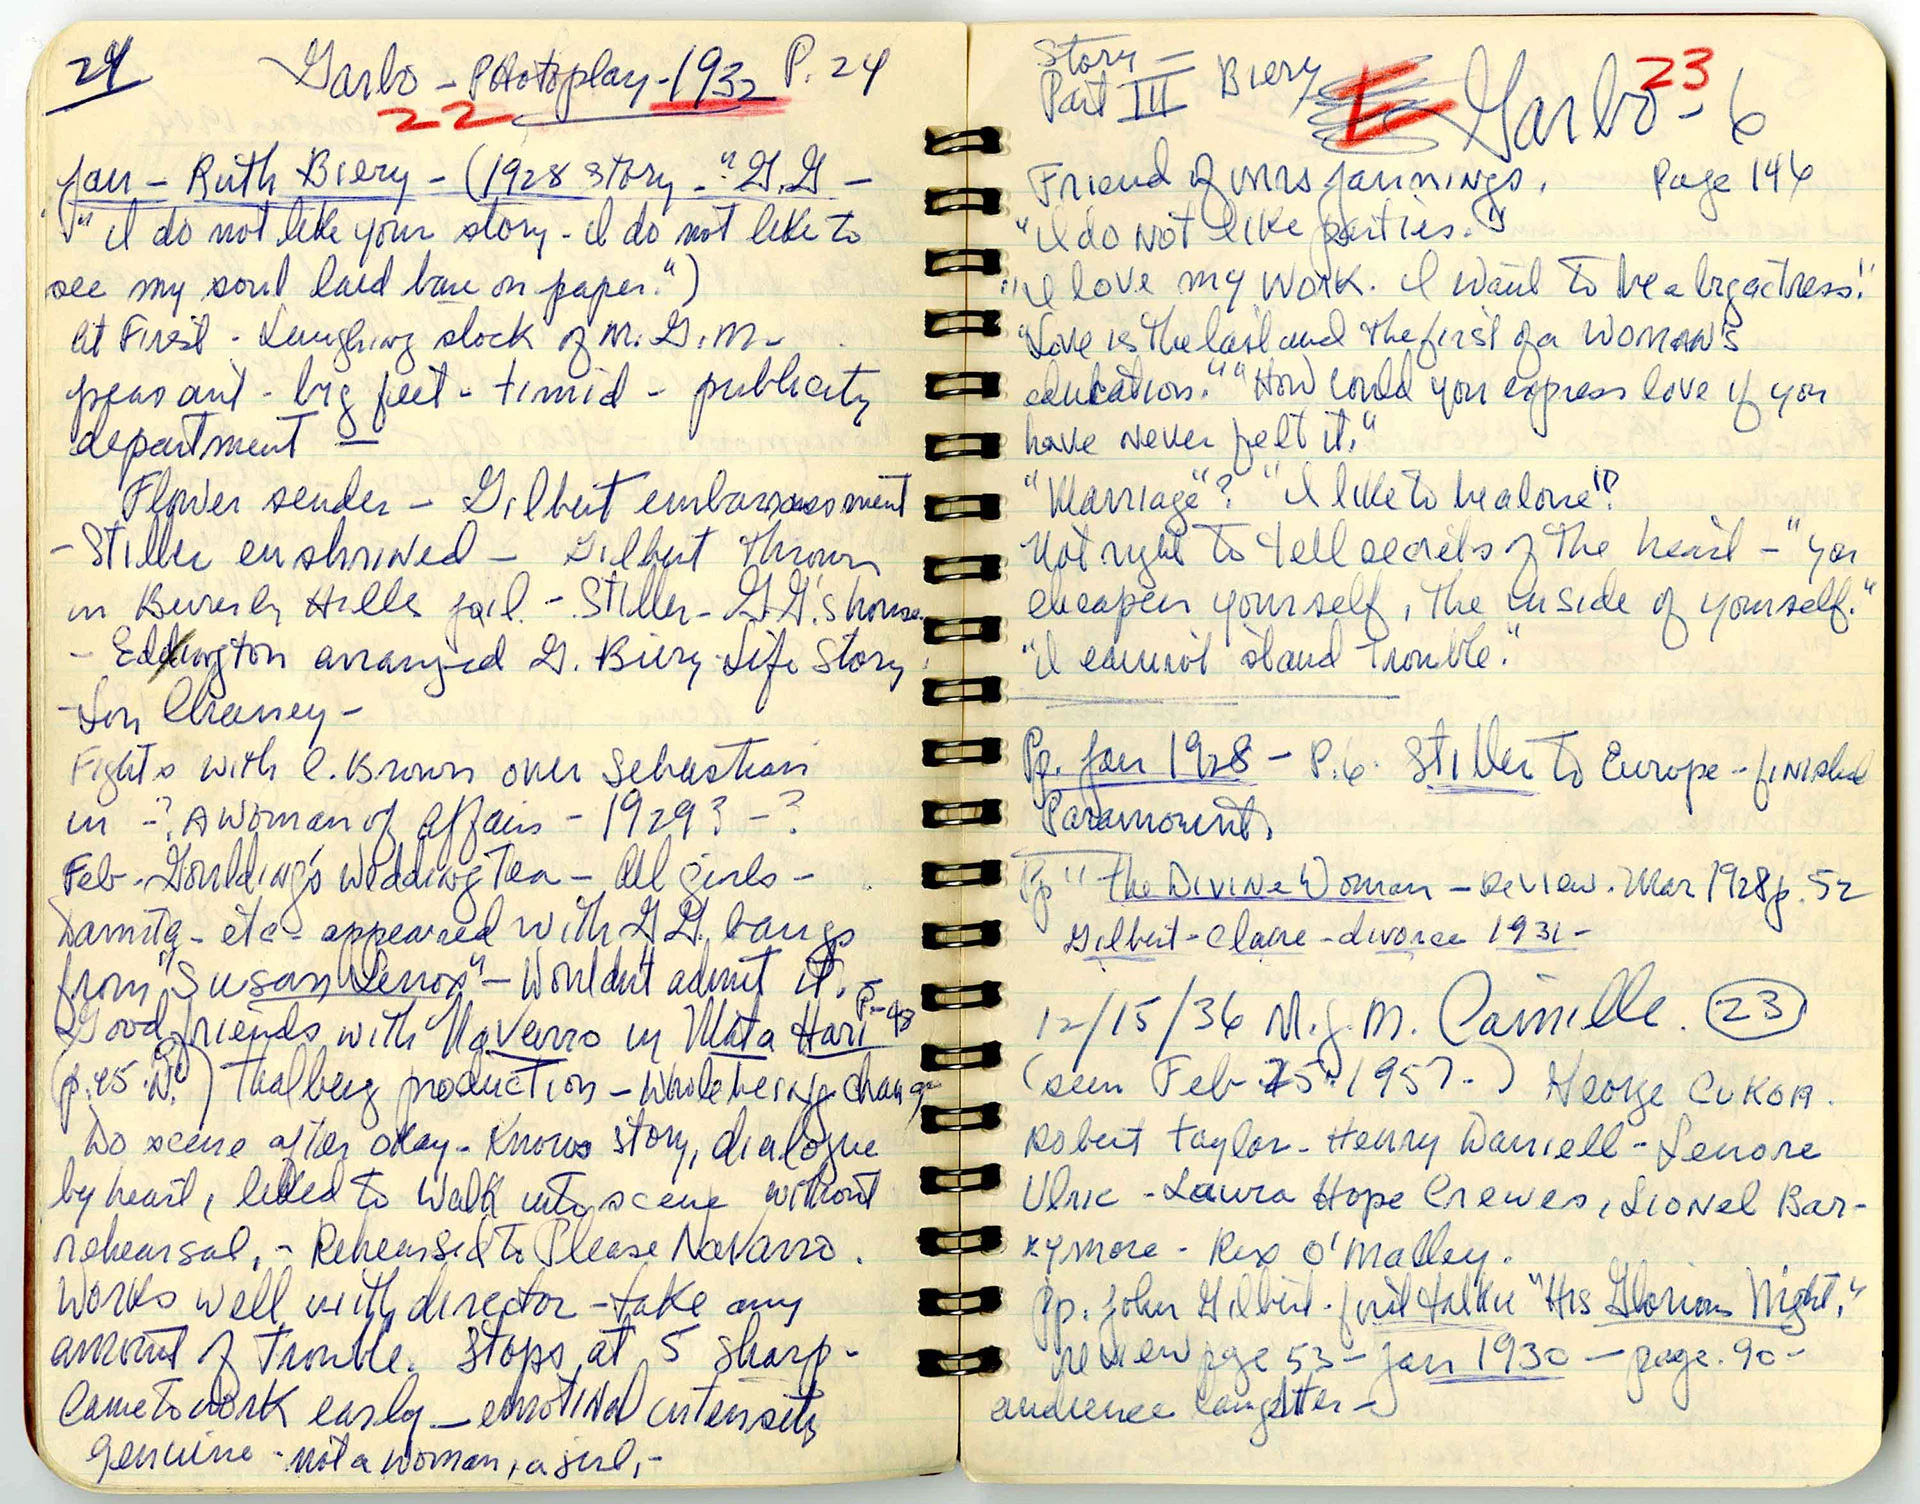 24
Garbo - Photoplay - 1932 P. 24
22
Jan - Ruth Biery - (1928 story - "G.G -
"I do not like your story - I do not like to
see my soul laid bare on paper.")
At First - Laughing stock of M.G.M. -
peasant - big feet - timid - publicity
department -
Flower sender - Gilbert embarrassment
- Stiller enshrined - Gilbert thrown
in Beverly Hills jail. - Stiller - G.G.'s house.
- Eddington arranged G. Biery Life Story.
- Lon Chaney -
Fights with C. Brown over Sebastian
in -? A Woman of Affairs - 1929? - ?
Feb - Goulding's Wedding Tea - All girls -
Damita - etc - appeared with G.G. bangs
from "Susan Lenox" - Wouldn't admit it. -
Good friends with Navarro in Mata Hari P. - 48
(p. 45 ) Thalberg production - Whole being change
Do scene after okay - Knows story, dialogue
by heart, liked to walk into scene without
rehearsal, - Rehearsed to Please Navarro.
Works well with director - take any
amount of trouble. Stops at 5 sharp -
Came to work early - emotional intensity
Genuine - not a woman, a girl, -
Story -
Part III Biery Garbo - 6
23
Friend of Mrs Jannings. Page 146
"I do not like parties."
"I love my work. I want to be a big actress!"
"Love is the last and the first of a woman's
education." "How could you express love if you
have never felt it."
"Marriage"? "I like to be alone"?
Not right to tell secrets of the heart - "You
cheapen yourself, the inside of yourself."
"I cannot stand trouble."
Pp. Jan 1928 - P. 6. Stiller to Europe - finished
Paramount.
Pp " The Divine Woman - Review. Mar 1928 p. 52
Gilbert - Claire - divorce 1931 -
12/15/36 M.G.M. Camille. 23
(seen Feb 25. 1957 - ) George Cukor.
Robert Taylor - Henry Daniell - Lenore
Ulric - Laura Hope Crewes, Lionel Bar-
rymore - Rex O'Malley.
Pp. John Gilbert - first talkie "His Glorious Night,"
review page 53 - Jan 1930 - page. 90 -
audience laughter -